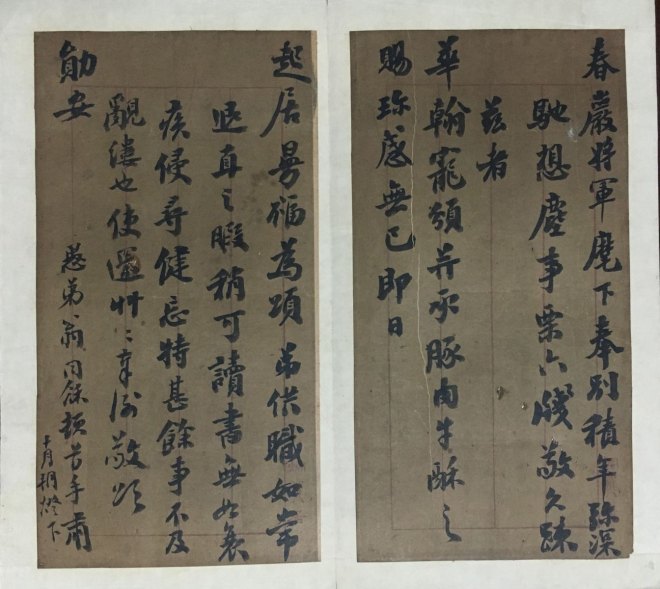 春巖將軍麾下奉別積年弥深
馳想塵事栗六牋敬久疎
茲者
華翰寵頒并承豚肉牛酥之
賜珍感無已即日
起居曼福為頌弟供職如常
退直之暇稍可讀書無如衰
疾侵尋健忘特甚餘事不及
覼縷也使還草〻奉謝敬頌
勛安
愚弟翁同龢頓首手肅
十月朔燈下